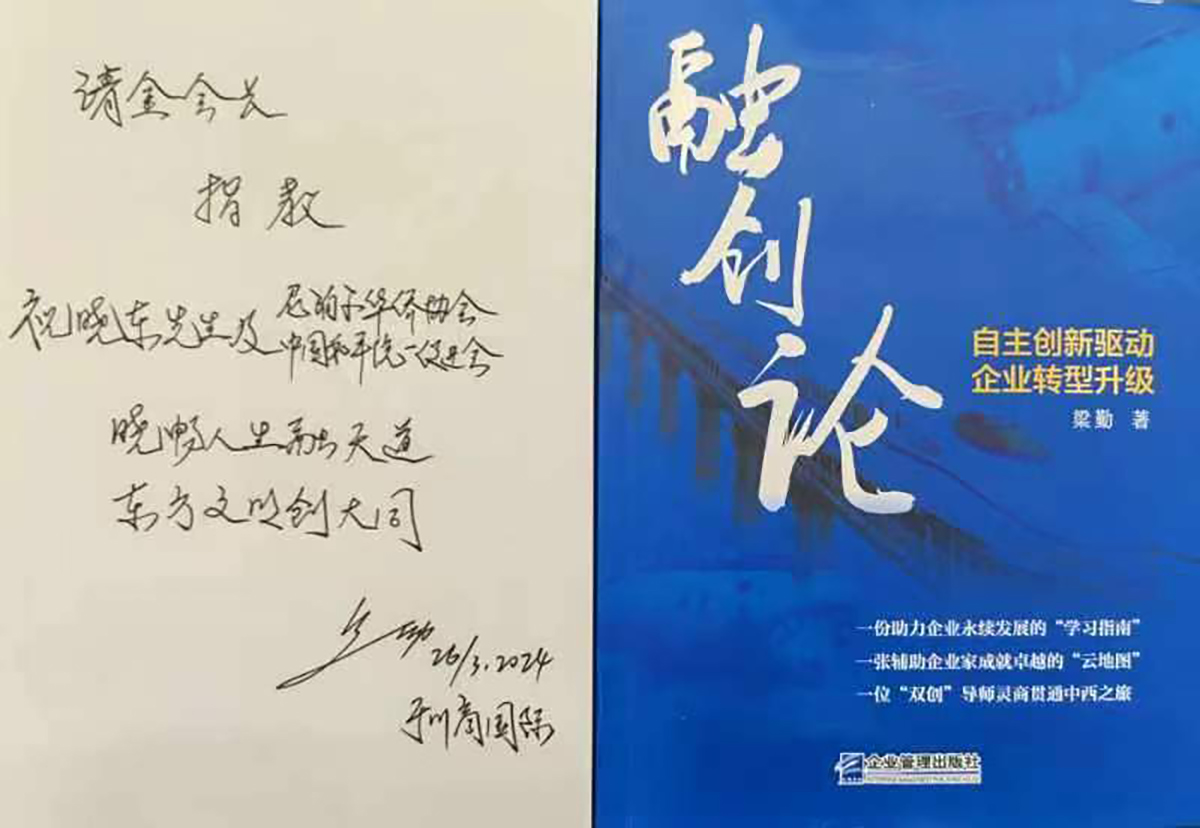 请金会长
指教
祝晓东先生及
尼泊尔华侨协会
中国和平统一促进会
晓畅人生融天道
东方文明创大同
26/3.2024
于川商国际
融创论
自主创新驱动
企业转型升级
梁勤 著
一份助力企业永续发展的“学习指南”
一张辅助企业家成就卓越的“云地图”
一位“双创”导师灵商贯通中西之旅
企业管理出版社